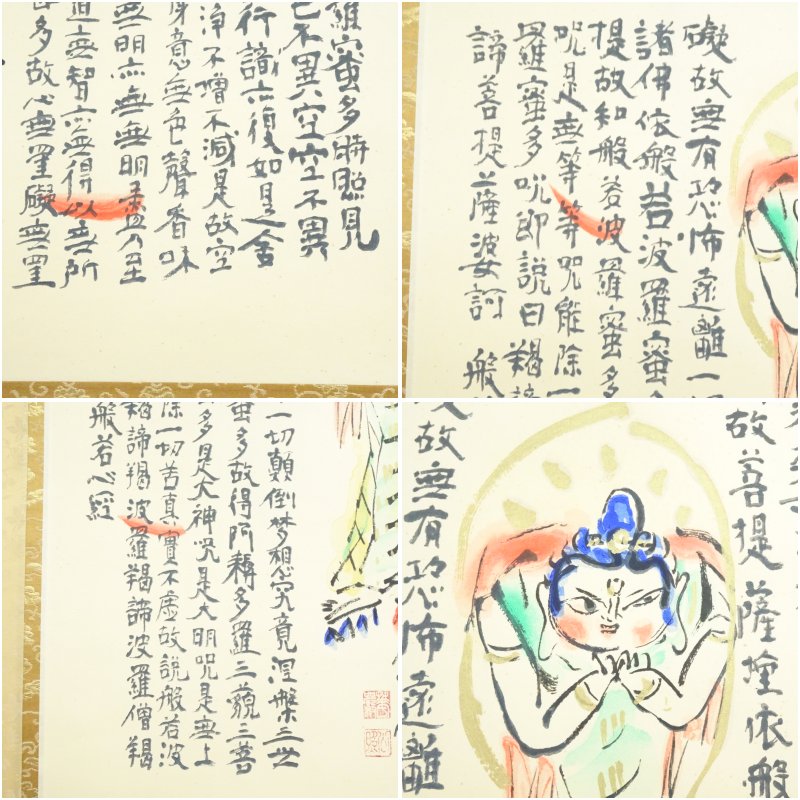 羅蜜多時照見
不異空空不異
行識亦復如是舍
浄不増不減是故空
身意無色聲香味
無明亦無無明盡乃至
道無智亦無得以無所
多故心無罣礙無罣
礙故無有恐怖遠離一
諸佛依般若波羅蜜
提故知般若波羅蜜多
咒是無等等咒能除一
羅蜜多咒即説曰羯
諦菩提薩婆訶 般
一切顛倒梦想究竟涅槃三世
蜜多故得阿耨多羅三藐三菩
多是大神咒是大明咒是無上
除一切苦真實不虚故説般若波
羯諦羯波羅羯諦波羅僧羯
般若心経
故菩提薩埵依般
故無有恐怖遠離